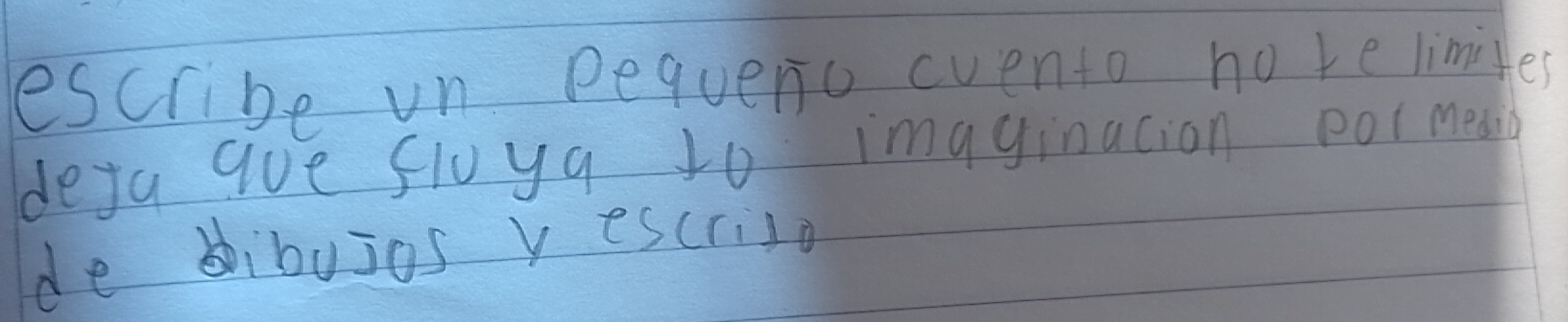 escribe un pequeño cuento no te limites
deja que fluya tu imaginacion por medio
de dibujos y escrito